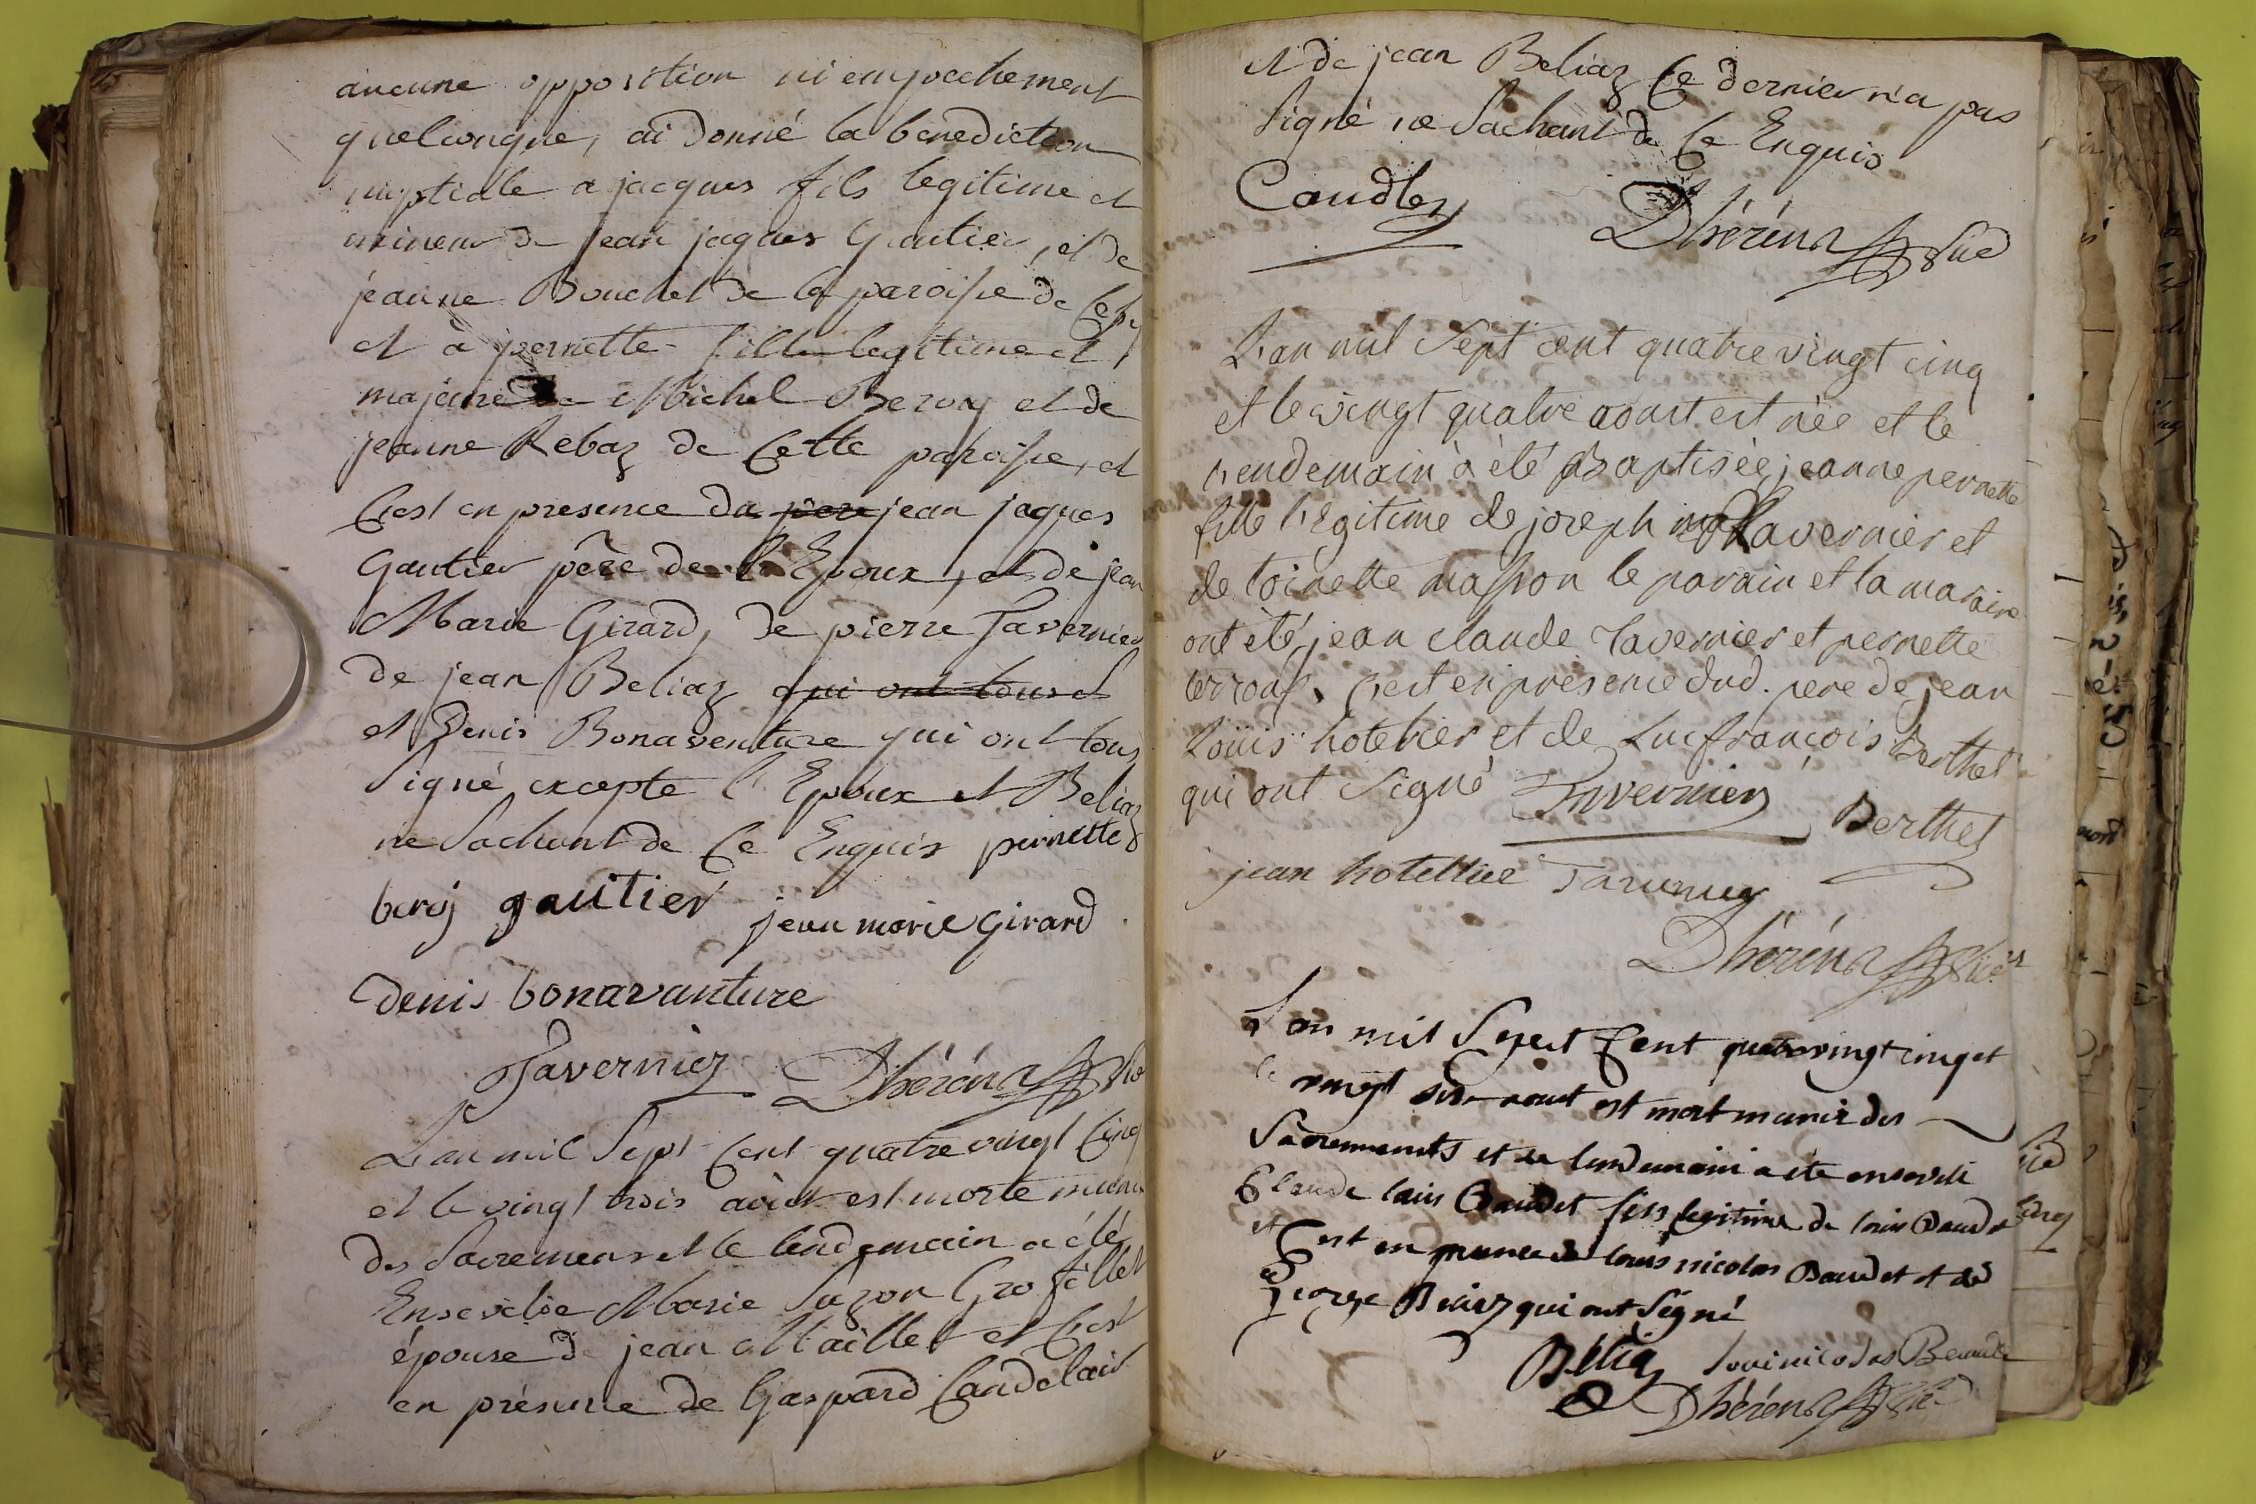 aucune opposition ni empechement
quelconque, ai donné la benediction
nuptiale a jacques fils legitime et
mineur de jean jaques Gautier, et de
jeanne Bouchet de la paroisse de
et à pernette fille legitime et
majeure de Michel Beroy et de
jeanne Rebaz de Cette paroisse, et
C'est en presence du pere jean jaques
Gautier père de l'Epoux, et de jean
Marie Girard, de pierre Tavernier
de jean Beliaz qui ont tous et
et Denis Bonaventure qui ont tous
Signé excepte l'Epoux et Beliaz
ne Sachant de Ce Enquis pernette
beroj gautier jean marie Girard
denis bonavanture
Tavernier Dhéréns
L'an mil Sept Cent quatre vingt Cinq
et le vingt trois aout est morte munie
des Sacremens et le lendemain a été
Ensevelie Marie Suzon Grofillet
épouse de jean Maillet et C'est
en présence de Gaspard Candelair
et de jean Beliaz Ce dernier n'a pas
Signé ne Sachant de Ce Enquis
Caudles
Dhéréns
L'an mil Sept cent quatre vingt cinq
et le vingt quatre aoust est née et le
lendemain à été Baptisée, jeanne pernette
fille légitime de joseph Tavernier et
de toinette masson le parain et la maraine
ont été, jean claude Tavernier et pernette
C'est en présence dud. pere de jean
Loüis hotelier et de Luc françois Berthet
qui ont Signé Tavernier Berthet
jean hotellier Tavernier
Dhéréns
L'an mil Sept Cent quatrevingt cinq et
le vingt six aout est mort munis des
Sacrements et le lendemain a été enseveli
Claude louis Baudet fils legitime de louis Baudet
et C'est en presence de louis nicolas Baudet et de
George Beliaz qui ont Signé
Béliaz louinicolas Beaudet
Dhéréns